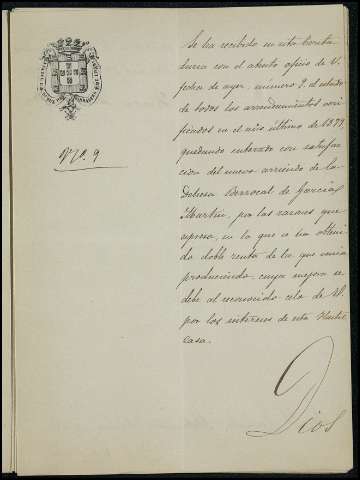 Nº. 9
Se ha recibido en esta Conta-
duria con el atento oficio de V.
fecha de ayer, número 9, el estado
de todos los arrendamientos veri-
ficados en el año último de 1879,
quedando enterado con satisfac-
cion del nuevo arriendo de la
Dehesa Berrocal de García
Martin, por las razones que
expresa, en la que se ha obteni-
do doble renta de la que venia
produciendo, cuya mejora se
debe al reconocido celo de V.
por los intereses de esta Ilustre
casa.
Dios